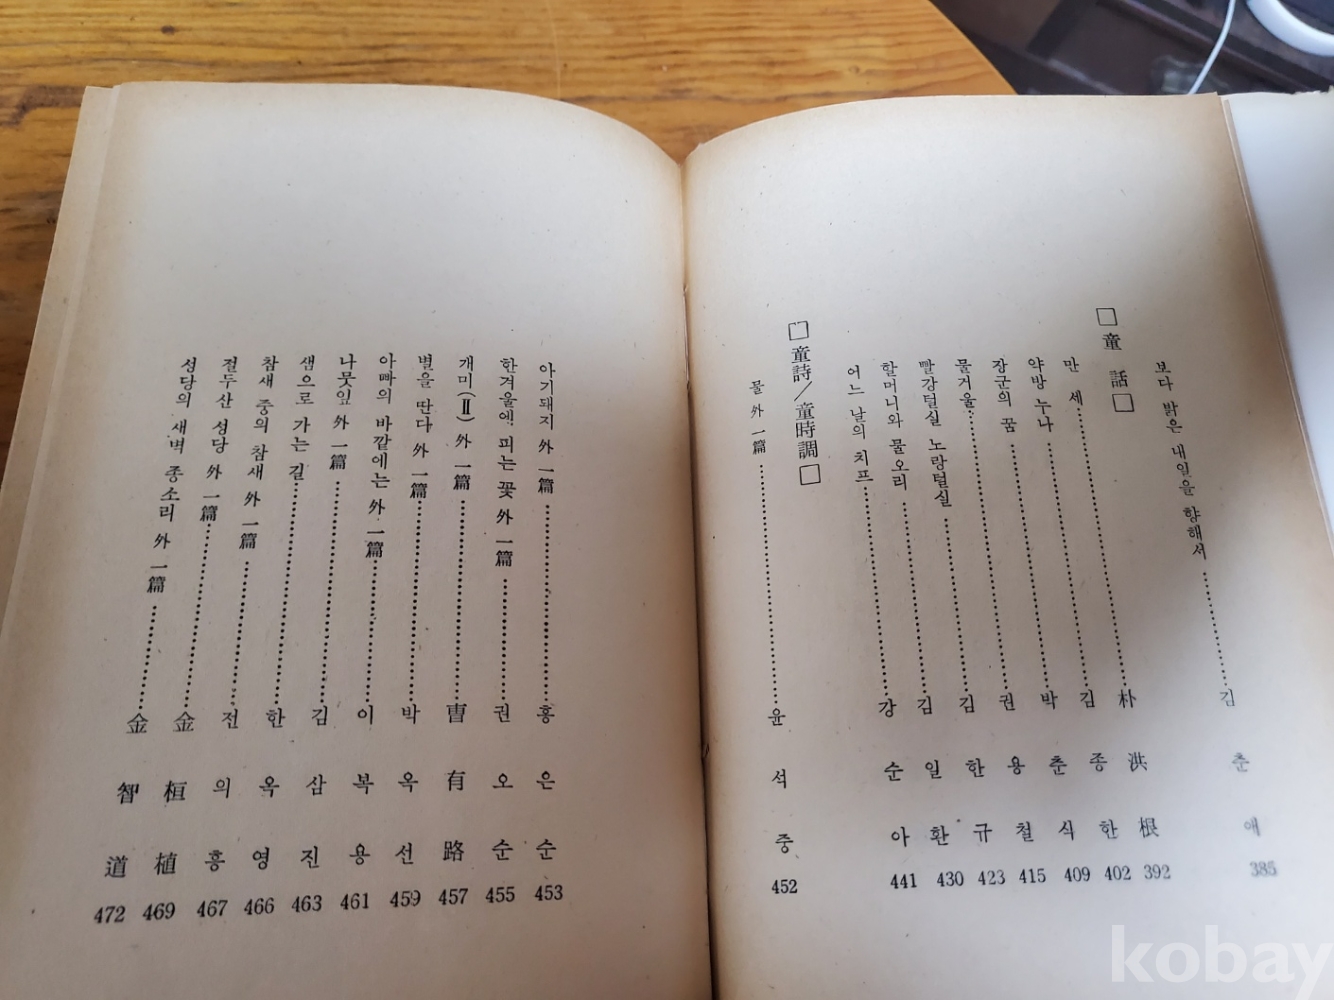 보다 밝은 내일을 향해서 ………… 김춘애 385
□ 童話 □
만세 ………… 朴洪根 392
약방 누나 ………… 김종한 402
장군의 꿈 ………… 박춘식 409
물거울 ………… 권용철 415
빨강털실 노랑털실 ………… 김한규 423
할머니와 물오리 ………… 김일환 430
어느 날의 치프 ………… 강순아 441
□ 童詩／童時調 □
물 外 一篇 ………… 윤석중 452
아기돼지 外 一篇 ………… 홍은순 453
한겨울에 피는 꽃 外 一篇 ………… 권오순 455
개미(Ⅱ) 外 一篇 ………… 曺有路 457
별을 딴다 外 一篇 ………… 박옥선 459
아빠의 바깥에는 外 一篇 ………… 이복용 461
나뭇잎 外 一篇 ………… 김삼진 463
샘으로 가는 길 ………… 한옥영 466
참새 중의 참새 外 一篇 ………… 전의홍 467
절두산 성당 外 一篇 ………… 金桓植 469
성당의 새벽 종소리 外 一篇 ………… 金智道 472
kobay